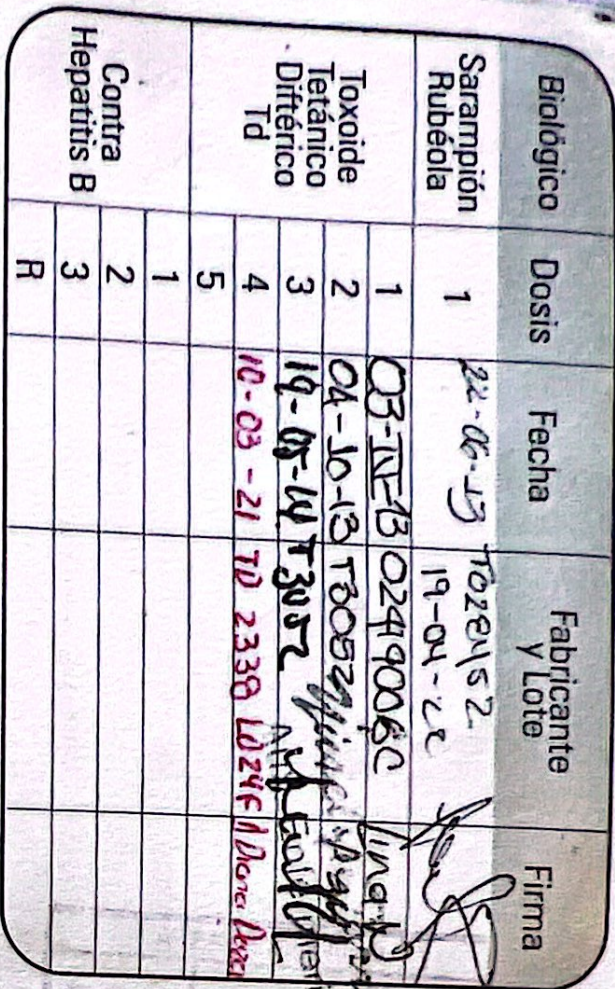 Biológico Dosis Fecha Fabricante y Lote Firma
Sarampión Rubéola 1 22-06-13 T028452
19-04-
Toxoide Tetánico Diftérico Td
1 03-IV-13 0241900BC Lina
2 04-10-13 T3052
3 19-05-14 T3052
4 10-03-21 TD 2338 L024F Diana
5
Contra Hepatitis B
1
2
3
R